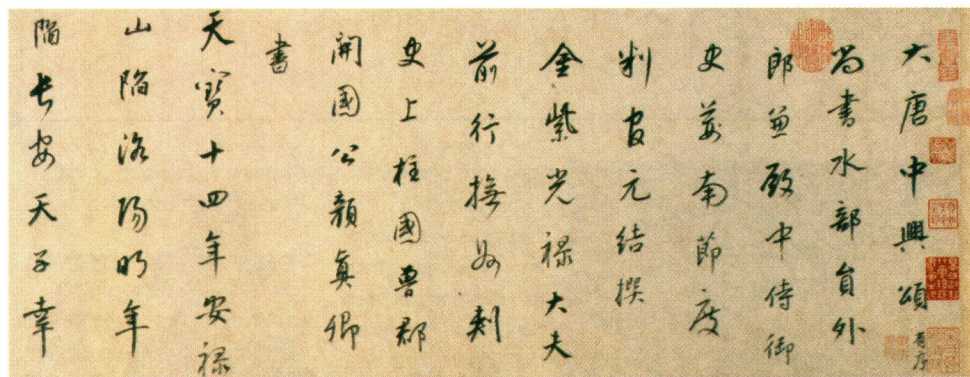 大唐中興頌有序
尚書水部員外
郎兼殿中侍御
史荊南節度
判官元結撰
金紫光祿大夫
前行撫州刺
史上柱國魯郡
開國公顏真卿
書
天寶十四年安祿
山陷洛陽明年
陷長安天子幸